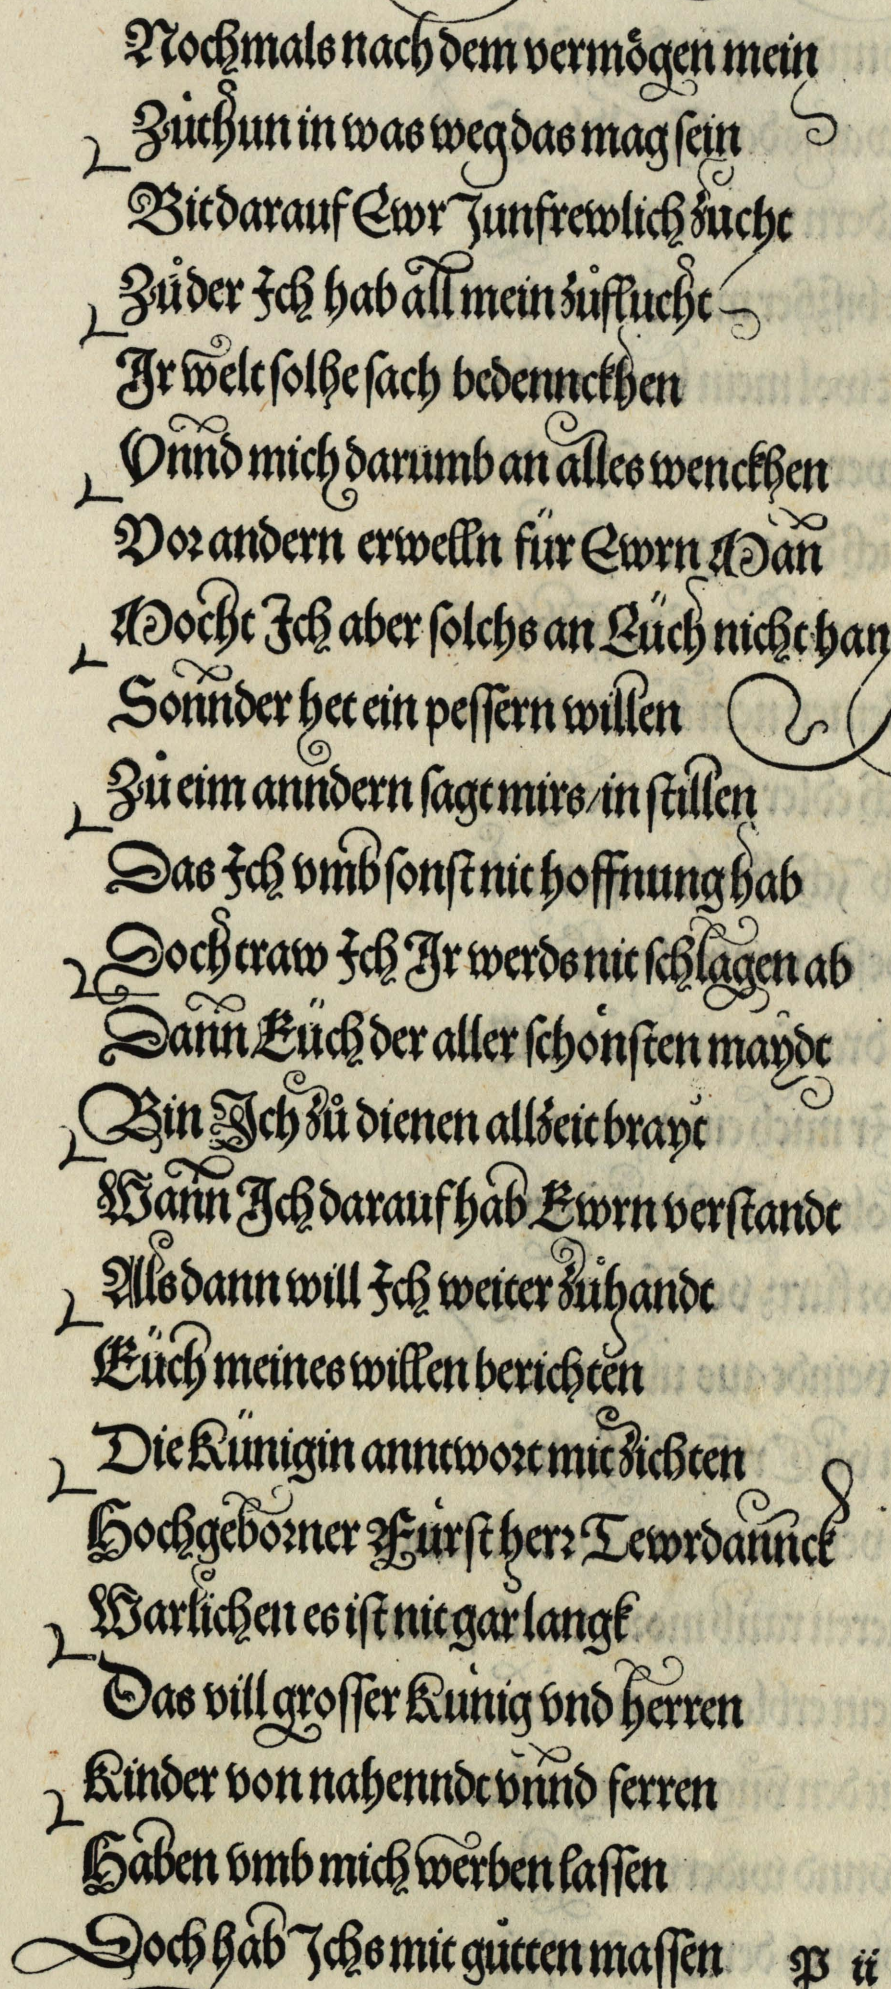 Nochmals nach dem vermögen mein
Zůthun in was weg das mag sein
Bit darauf Ewr Junfrewlich zucht
Zů der Ich hab all mein zůflucht
Ir welt solhe sach bedennckhen
Vnnd mich darumb an alles wenckhen
Vor andern erwelln für Ewrn Man
Mocht Ich aber solchs an Eüch nicht han
Sonnder het ein pessern willen
Zů eim anndern sagt mirs / in stillen
Das Ich vmb sonst nit hoffnung hab
Doch traw Ich Ir werds nit schlagen ab
Dann Eüch der aller schönsten maÿdt
Bin Ich zů dienen allzeit brayt
Wann Ich darauf hab Ewrn verstandt
Als dann will Ich weiter zůhandt
Eüch meines willen berichten
Die Künigin anntwort mit zichten
Hochgeborner Fürst herr Tewrdannck
Warlichen es ist nit gar langk
Das vill grosser Künig vnd herren
Kinder von nahenndt vnnd ferren
Haben vmb mich werben lassen
Doch hab Ichs mit gůtten massen
P ii